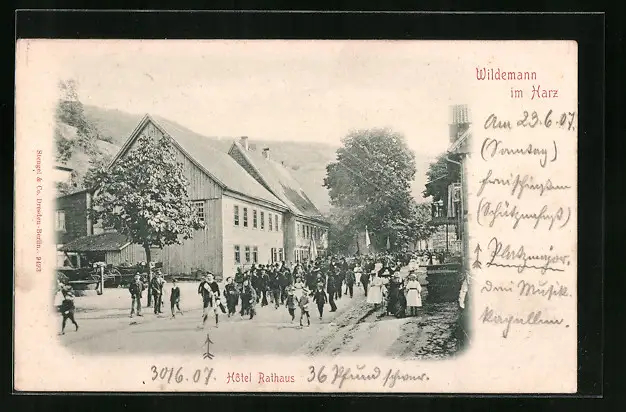 Wildemann
im Harz
Am 23.6.07.
(Sonntag)
freischießen
(Schützenfest)
Platzmajor.
drei Musik.
kapellen.
Stengel & Co. Dresden-Berlin. 9493
30/6.07. Hôtel Rathaus 36 Pfund schwer.